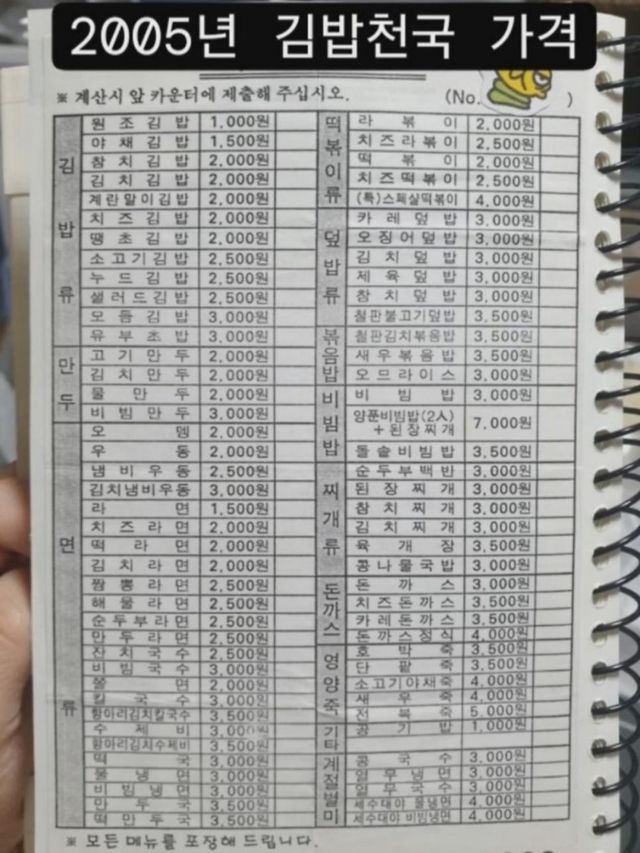 2005년 김밥천국 가격
※ 계산시 앞 카운터에 제출해 주십시오. (No. )
김밥류
원조김밥 1,000원
야채김밥 1,500원
참치김밥 2,000원
김치김밥 2,000원
계란말이김밥 2,000원
치즈김밥 2,000원
땡초김밥 2,000원
소고기김밥 2,500원
누드김밥 2,500원
샐러드김밥 2,500원
모듬김밥 3,000원
유부초밥 3,000원
만두
고기만두 2,000원
김치만두 2,000원
물만두 2,000원
비빔만두 3,000원
면류
오뎅 2,000원
우동 2,000원
냄비우동 2,500원
김치냄비우동 3,000원
라면 1,500원
치즈라면 2,000원
떡라면 2,000원
김치라면 2,000원
짬뽕라면 2,500원
해물라면 2,500원
순두부라면 2,500원
만두라면 2,500원
잔치국수 2,500원
비빔국수 3,000원
쫄면 2,000원
칼국수 3,000원
항아리김치칼국수 3,500원
수제비 3,000원
항아리김치수제비 3,500원
떡국 3,000원
물냉면 3,000원
비빔냉면 3,000원
만두국 3,500원
떡만두국 3,500원
떡볶이류
라볶이 2,000원
치즈라볶이 2,500원
떡볶이 2,000원
치즈떡볶이 2,500원
(특)스페샬떡볶이 4,000원
덮밥류
카레덮밥 3,000원
오징어덮밥 3,000원
김치덮밥 3,000원
제육덮밥 3,000원
참치덮밥 3,000원
철판불고기덮밥 3,500원
볶음밥
철판김치볶음밥 3,500원
새우볶음밥 3,500원
오므라이스 3,000원
비빔밥
비빔밥 3,000원
양푼비빔밥(2人)
+된장찌개 7,000원
돌솥비빔밥 3,500원
찌개류
순두부백반 3,000원
된장찌개 3,000원
참치찌개 3,000원
김치찌개 3,000원
육개장 3,500원
콩나물국밥 3,000원
돈까스
돈까스 3,000원
치즈돈까스 3,500원
카레돈까스 3,500원
돈까스정식 4,000원
영양죽
호박죽 3,500원
단팥죽 3,500원
소고기야채죽 4,000원
새우죽 4,000원
전복죽 5,000원
기타
공기밥 1,000원
계절별미
콩국수 3,000원
열무냉면 3,000원
열무국수 3,000원
세수대야 물냉면 4,000원
세수대야 비빔냉면 4,000원
※ 모든 메뉴를 포장해 드립니다.